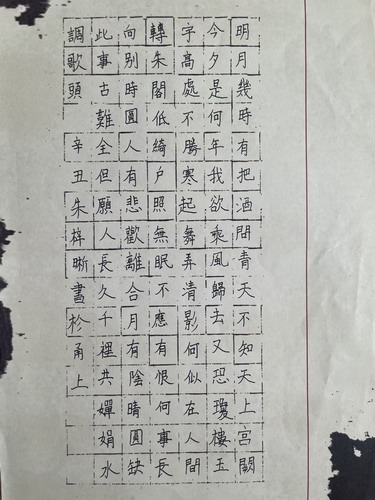 明月幾時有把酒問青天不知天上宮闕
今夕是何年我欲乘風歸去又恐瓊樓玉
宇高處不勝寒起舞弄清影何似在人間
轉朱閣低綺户照無眠不應有恨何事長
向别時圓人有悲歡離合月有陰晴圓缺
此事古難全但願人長久千裡共嬋娟水
調歌頭 辛丑朱梓晰書扵甬上